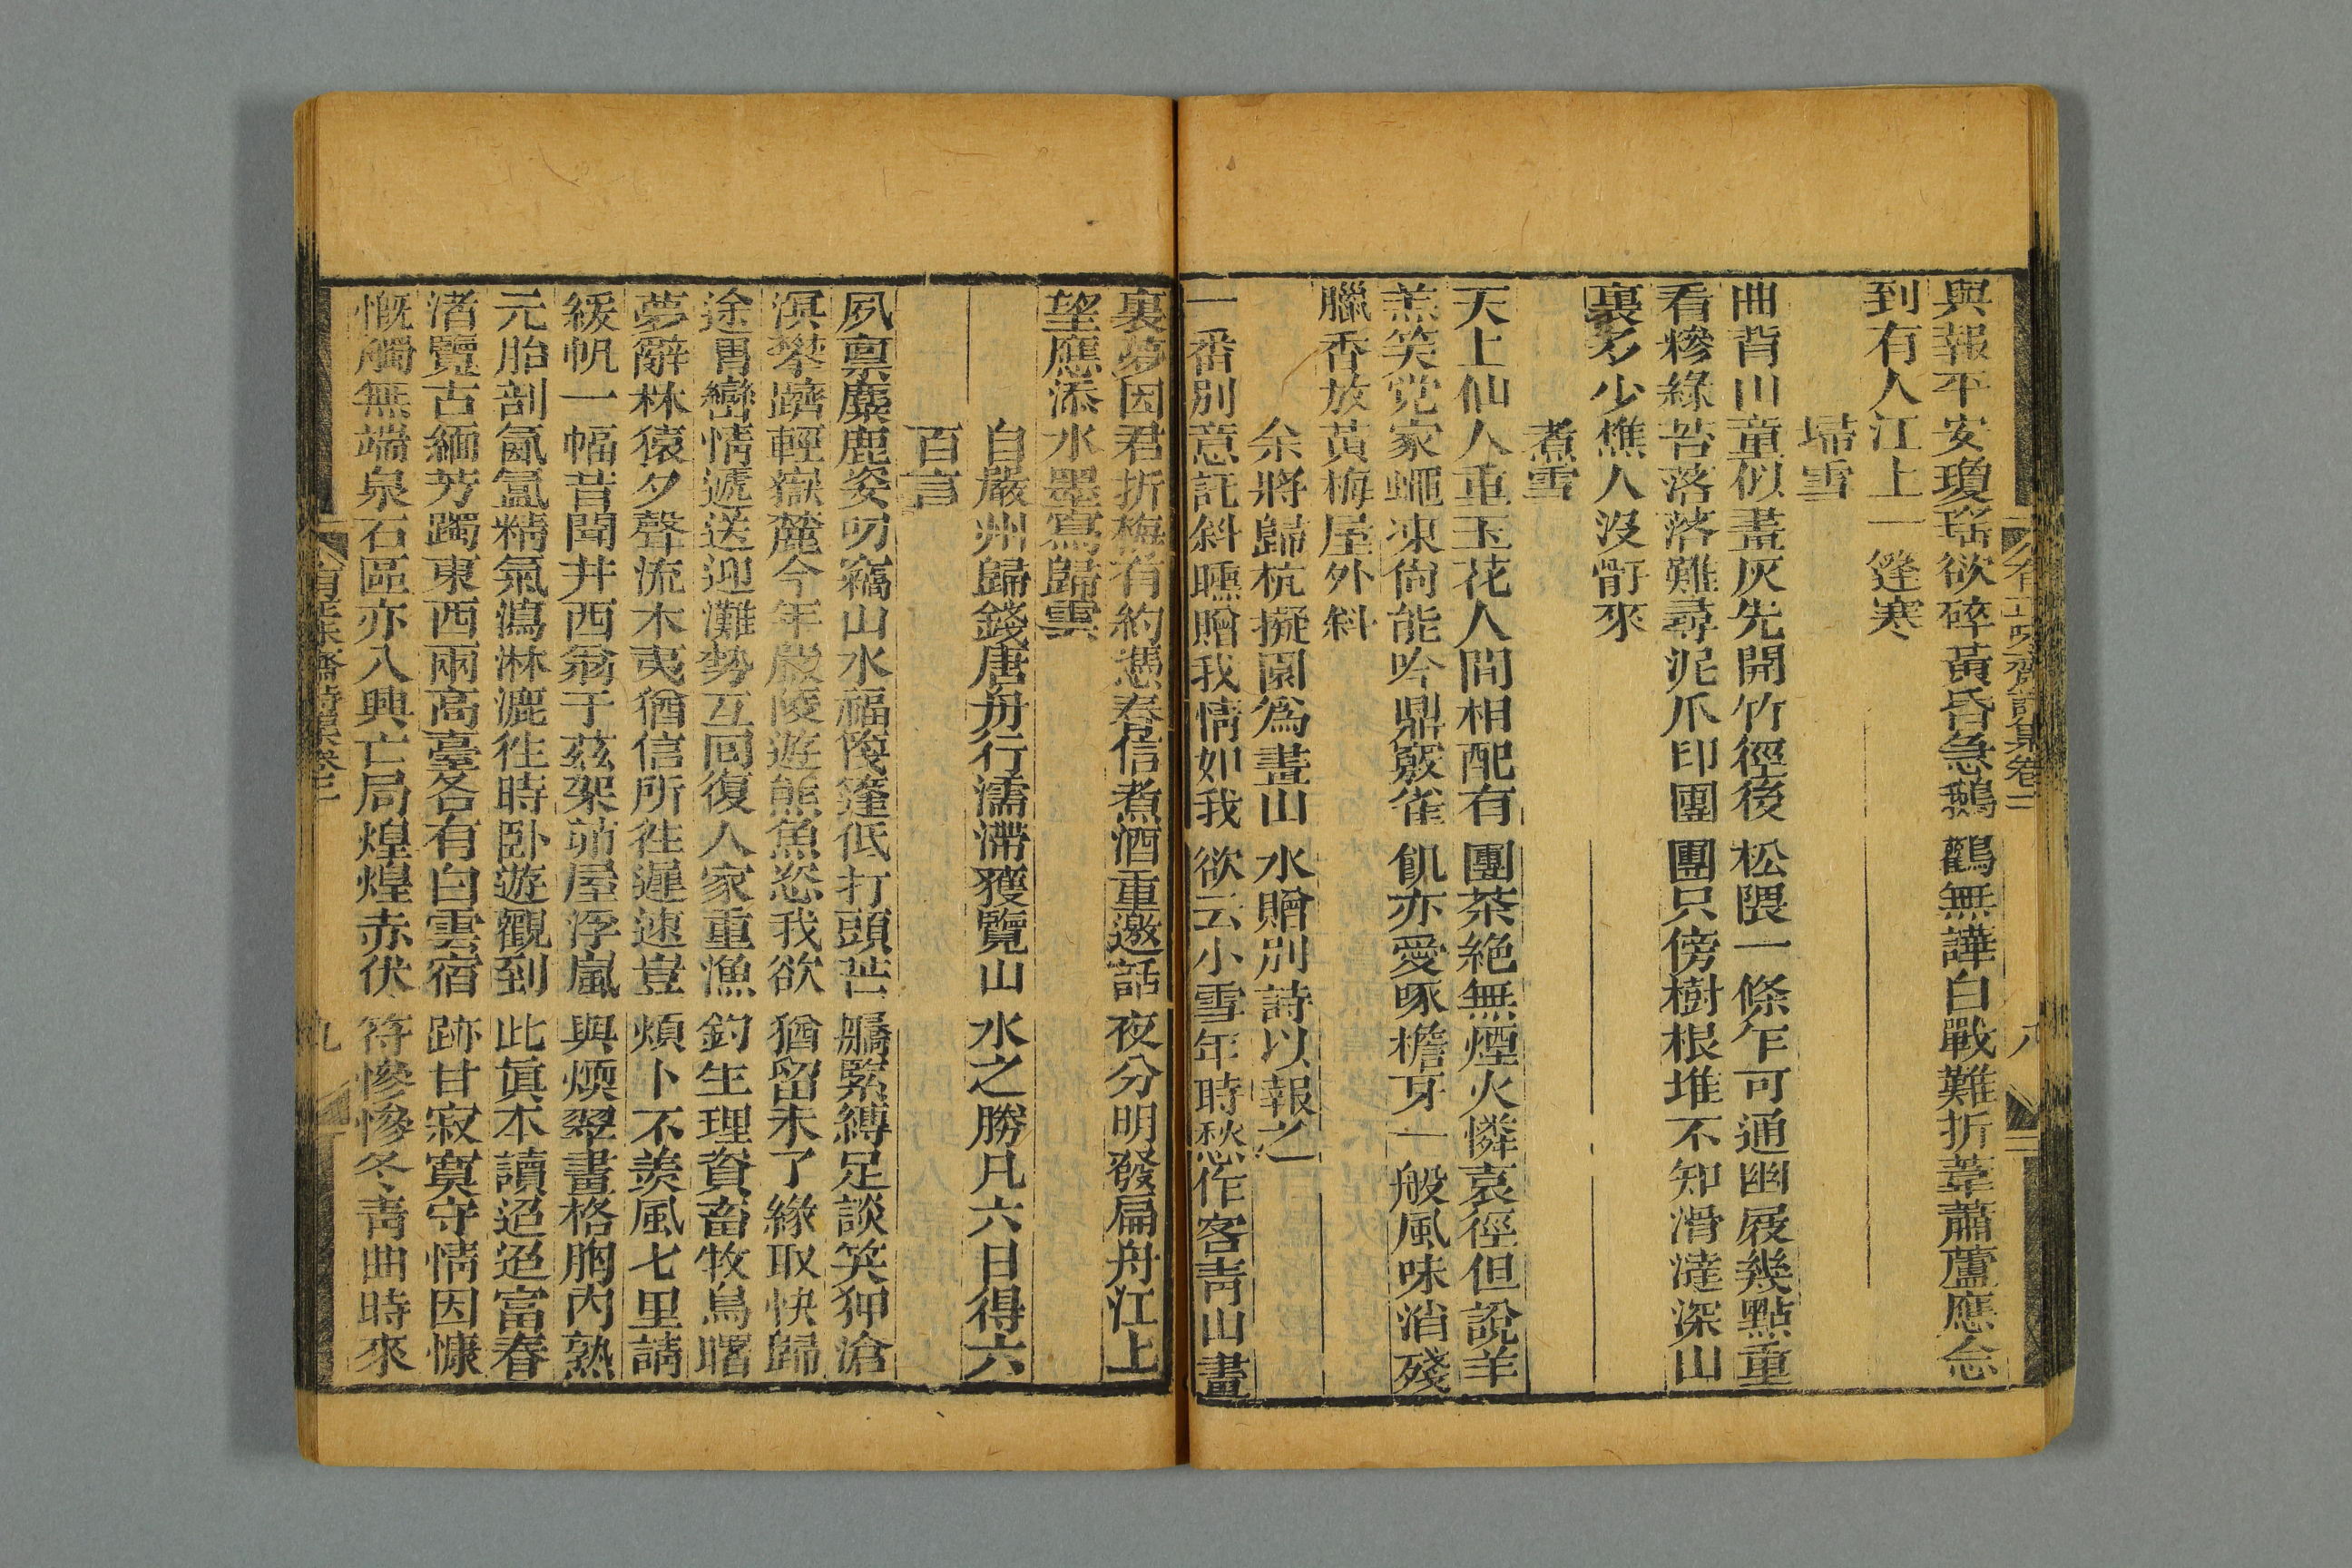 與報平安瓊瑤欲碎黃昏急鵝鸛無譁白戰難折葦蕭蘆應念
到有人江上一篷寒
埽雪
曲背川童似畫灰先開竹徑後松隈一條乍可通幽屐幾點重
看糝綠苔落落難尋泥爪印團團只傍樹根堆不知滑澾深山
裏多少樵人沒骭來
煮雪
天上仙人重玉花人間相配有團茶絶無煙火憐哀徑但說羊
羔笑党家蠅凍尙能吟鼎竅雀飢亦愛啄檐牙一般風味消殘
臘香放黃梅屋外斜
余將歸杭擬園爲畫山水贈別詩以報之
一番別意託斜曛贈我情如我欲云小雪年時愁作客靑山畫
裏夢因君折梅有約憑春信煮酒重邀話夜分明發扁舟江上
望應添水墨寫歸雲
自嚴州歸錢唐舟行濡滯獲覽山水之勝凡六日得六
百言
夙禀麋鹿姿叨竊山水福篾篷低打頭芒屩緊縛足談笑狎滄
溟攀躋輕嶽麓今年嚴陵遊熊魚恣我欲猶留未了緣取快歸
途胃巒情遞送迎灘勢互回復人家重漁釣生理資畜牧鳥曙
夢辭林猿夕聲流木夷猶信所徃遲速豈煩卜不羨風七里請
緩帆一幅昔聞井西翁于茲架茆屋浮嵐與煗翠畫格胸內熟
元胎剖氤氳精氣瀉淋漉徃時臥遊觀到此眞本讀迢迢富春
渚覽古緬芳躅東西兩高臺各有白雲宿跡甘寂寞守情因慷
慨觸無端泉石區亦入興亡局煌煌赤伏符慘慘冬靑曲時來
有正味齋詩集卷二
八
有正味齋詩集卷二
九